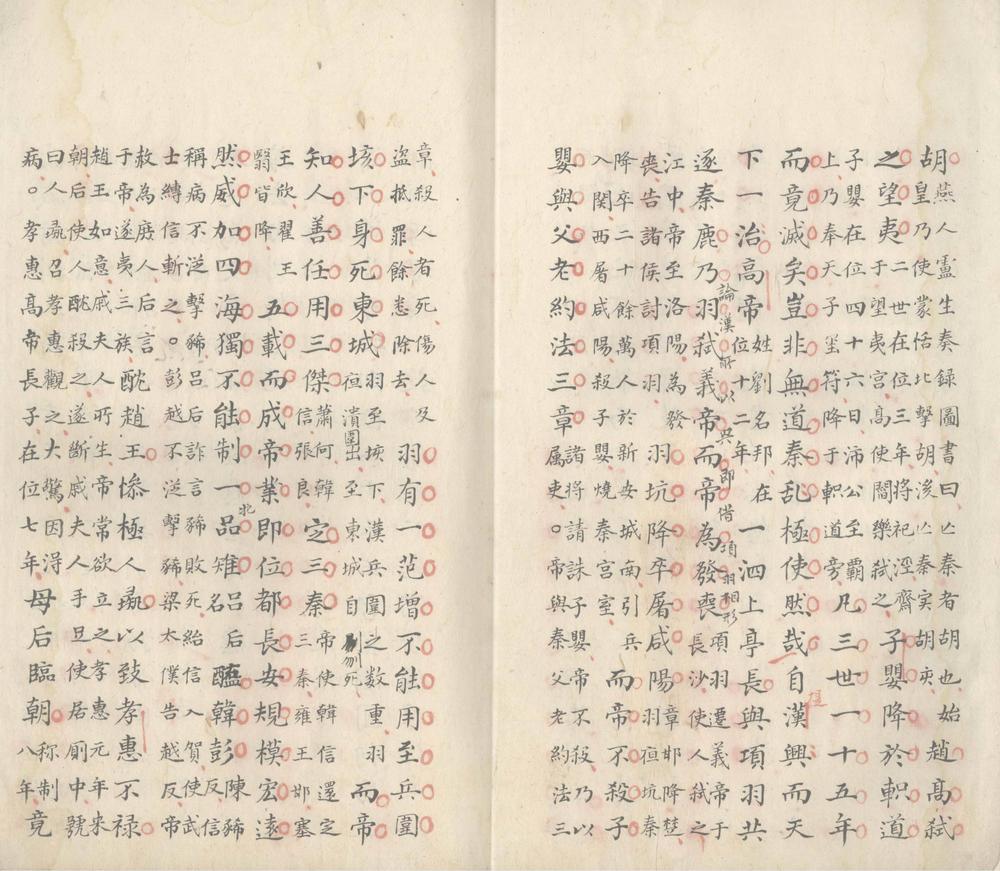 胡燕人盧生奏録圖書曰亡秦者胡也始
皇乃使蒙恬北擊胡浚亡秦实胡亥趙高弑
之望夷二世在位三年將祀涇齋
于望夷宮高使閻樂弑之子嬰降於軹道
子嬰在位四十六日沛公至霸
上乃奉天子玺符降于軹道旁凡三世一十五年
而竟滅矣豈非無道秦乱極使然哉自漢興而天
下一治高帝姓劉名邦在
位十二年一泗上亭長與項羽共
論漢所以興即借項羽相形
逐秦鹿乃羽弑義帝而帝為發喪項羽遷義帝于
長沙使人弑之于
江中帝至洛陽為發
喪告諸侯討項羽羽坑降卒屠咸陽章邯降楚
羽亱坑秦
降卒二十餘萬人於新安城南引兵
入関西屠咸陽殺子嬰燒秦宮室而帝不殺子
嬰與父老約法三章諸將請誅子嬰帝不殺乃以
属吏。帝與秦父老約法三
章殺人者死傷人及
盗抵罪餘悉除去羽有一范增不能用至兵圍
垓下身死東城羽至垓下漢兵圍之数重羽
亱潰圍出至東城自刎死而帝
知人善任用三傑蕭何韓
信張良定三秦帝使韓信還定
三秦雍王邯塞
王欣翟王
翳皆降五載而成帝業即位都長安規模宏遠
然威加四海獨不能制一牝雉呂后
名雉醢韓彭陳豨
反信
稱病不従擊豨呂后詐言豨敗死紿信入賀使武
士縛信斬之。彭越不従擊豨梁太僕告越反帝
赦為庶人后言
于帝遂夷三族酖趙王慘極人彘以致孝惠不祿
趙王如意戚夫人所生帝常欲立之孝惠元年来
朝后使人酖殺之遂斷戚夫人手足使居厠中號
曰人彘召孝惠觀之大驚因得
病。孝惠高帝長子在位七年母后臨朝称制
八年竟